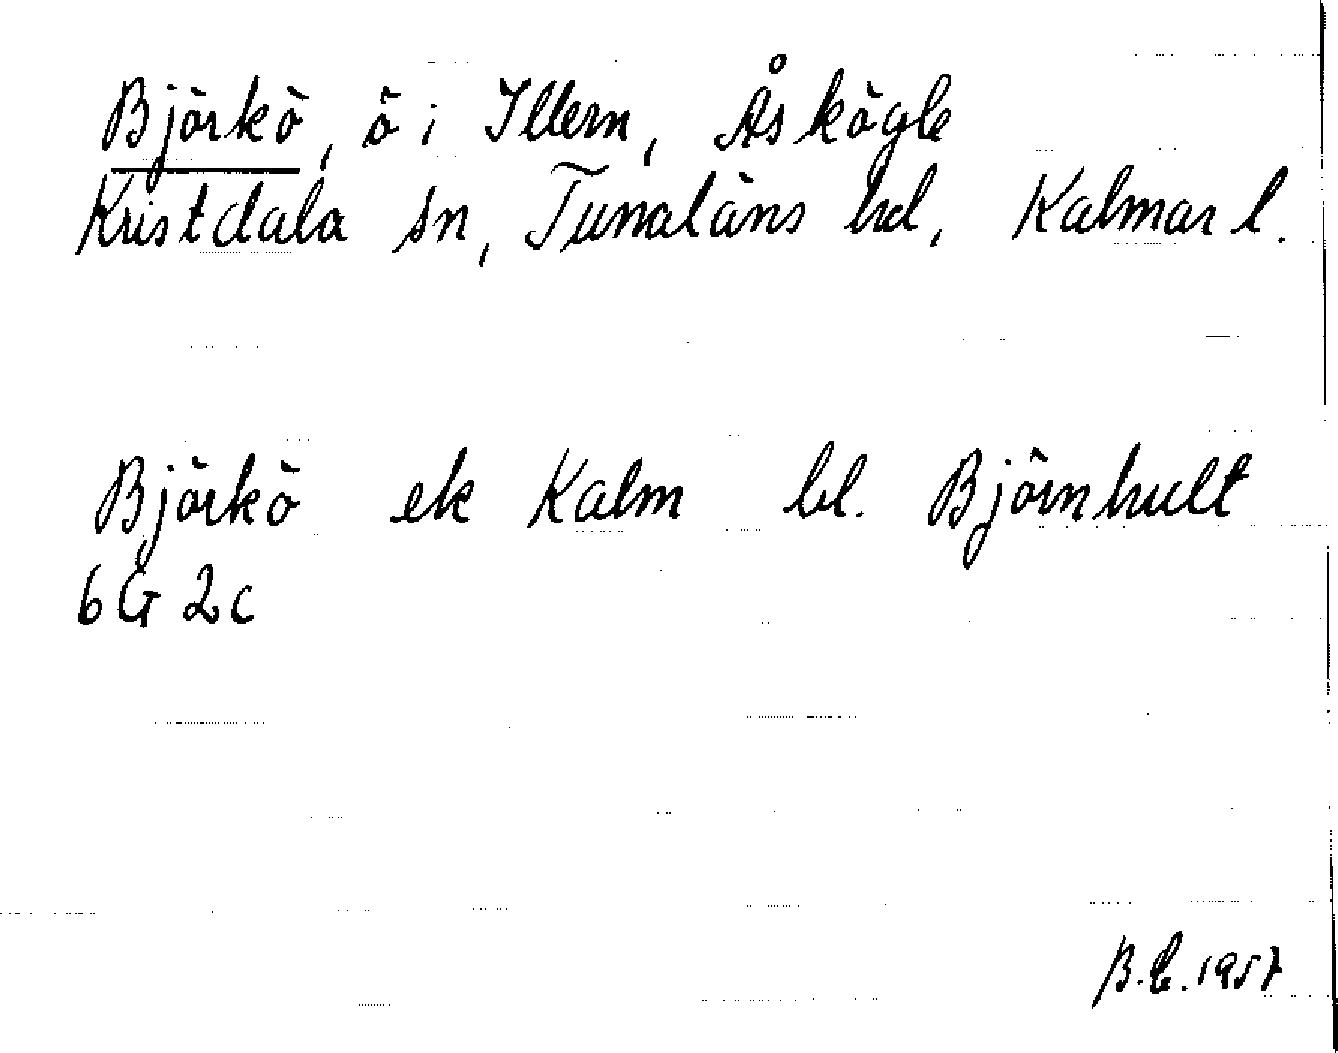 Björkö, ö i Illern, Åskögle
Kristdala sn, Tunaläns hd, Kalmar l.
Björkö ek Kalm bl. Björnhult
6 G 2 c
B.E. 1957